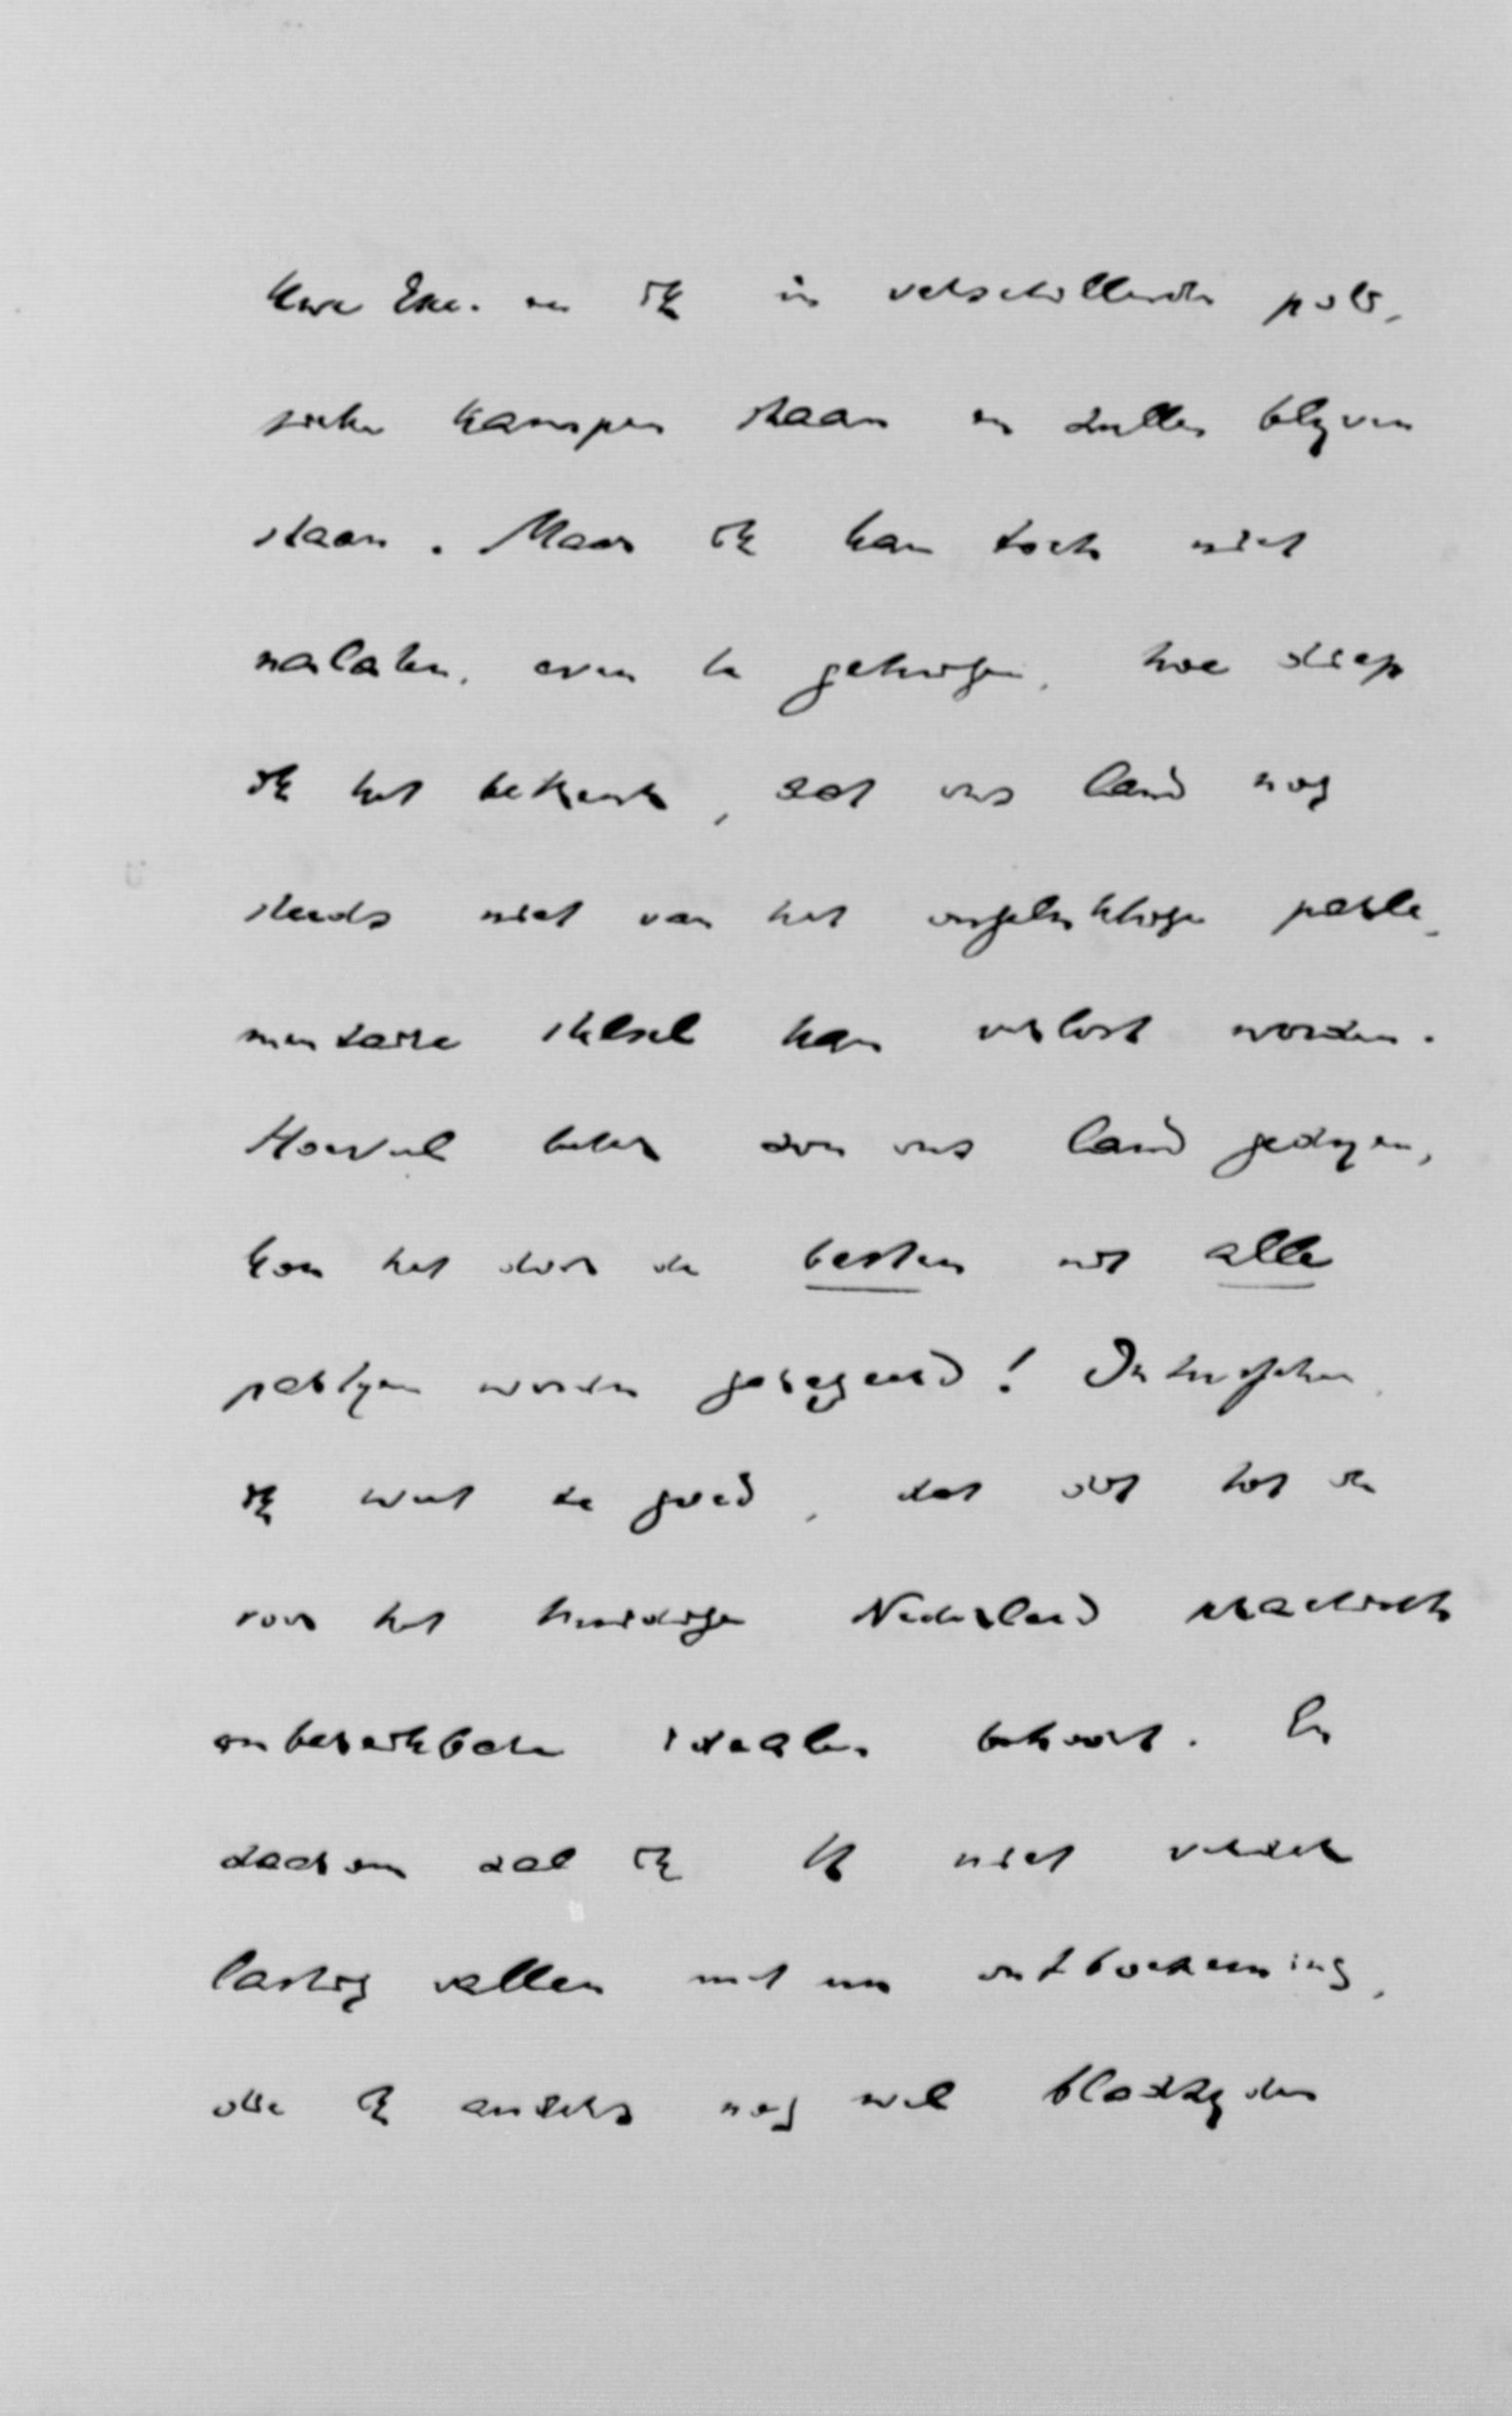 Uwe Exc. en ik in verschillende poli-
tieke kampen staan en zullen blijven
staan. Maar ik kan toch niet
nalaten, even te getuigen, hoe diep
ik het betreur, dat ons land nog
steeds niet van het ongelukkige parle-
mentaire stelsel kan verlost worden.
Hoeveel beter zou ons land gedijen,
kon het door de besten uit alle
partijen worden geregeerd! Intusschen
ik weet te goed, dat dit tot de
voor het huidige Nederland practisch
onbereikbare idealen behoort. En
daarom zal ik U niet verder
lastig vallen met een ontboezeming,
die ik anders nog wel bladzijden